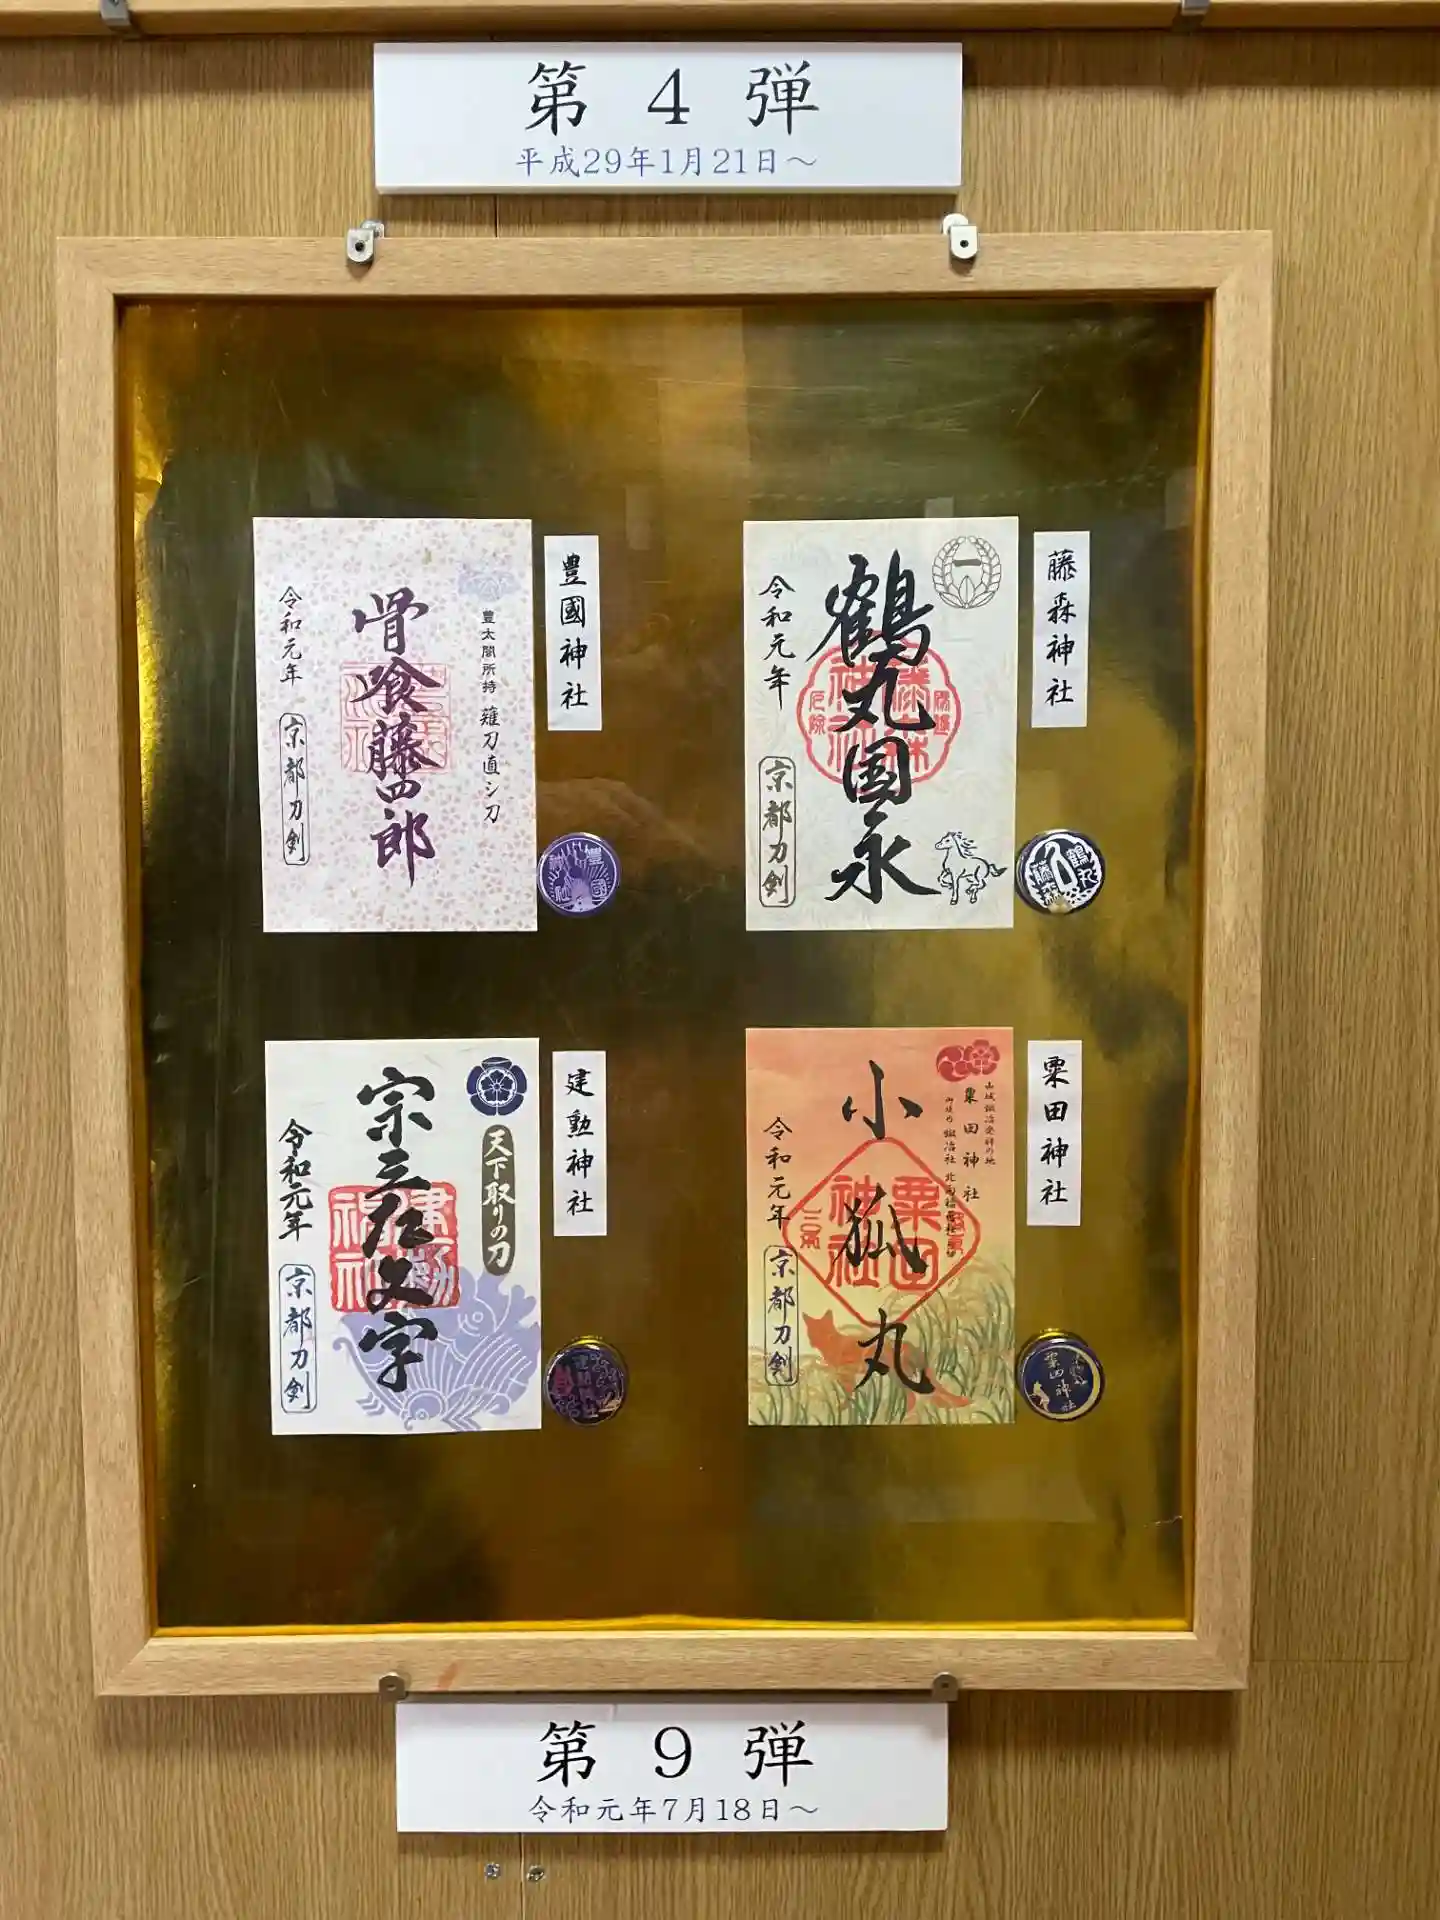 第 4 弾
平成29年1月21日～
藤森神社
鶴丸国永
令和元年
京都刀剣
一
豊國神社
豊太閤所持 薙刀直シ刀
骨喰藤四郎
令和元年
京都刀剣
粟田神社
山城鍛冶発祥の地
粟田神社
小狐丸
粟田神社
令和元年
京都刀剣
粟田神社
建勲神社
天下取りの刀
宗三左文字
令和元年
京都刀剣
第 9 弾
令和元年7月18日～